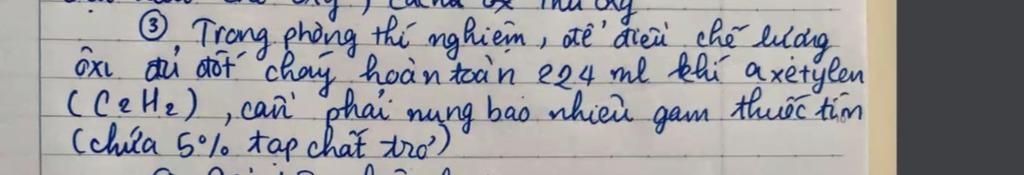 ③ Trong phòng thí nghiệm, để điều chế lượng
ôxi đủ đốt cháy hoàn toàn 224 ml khí axetylen
(C2H2), cần phải nung bao nhiêu gam thuốc tím
(chứa 5% tạp chất trơ)